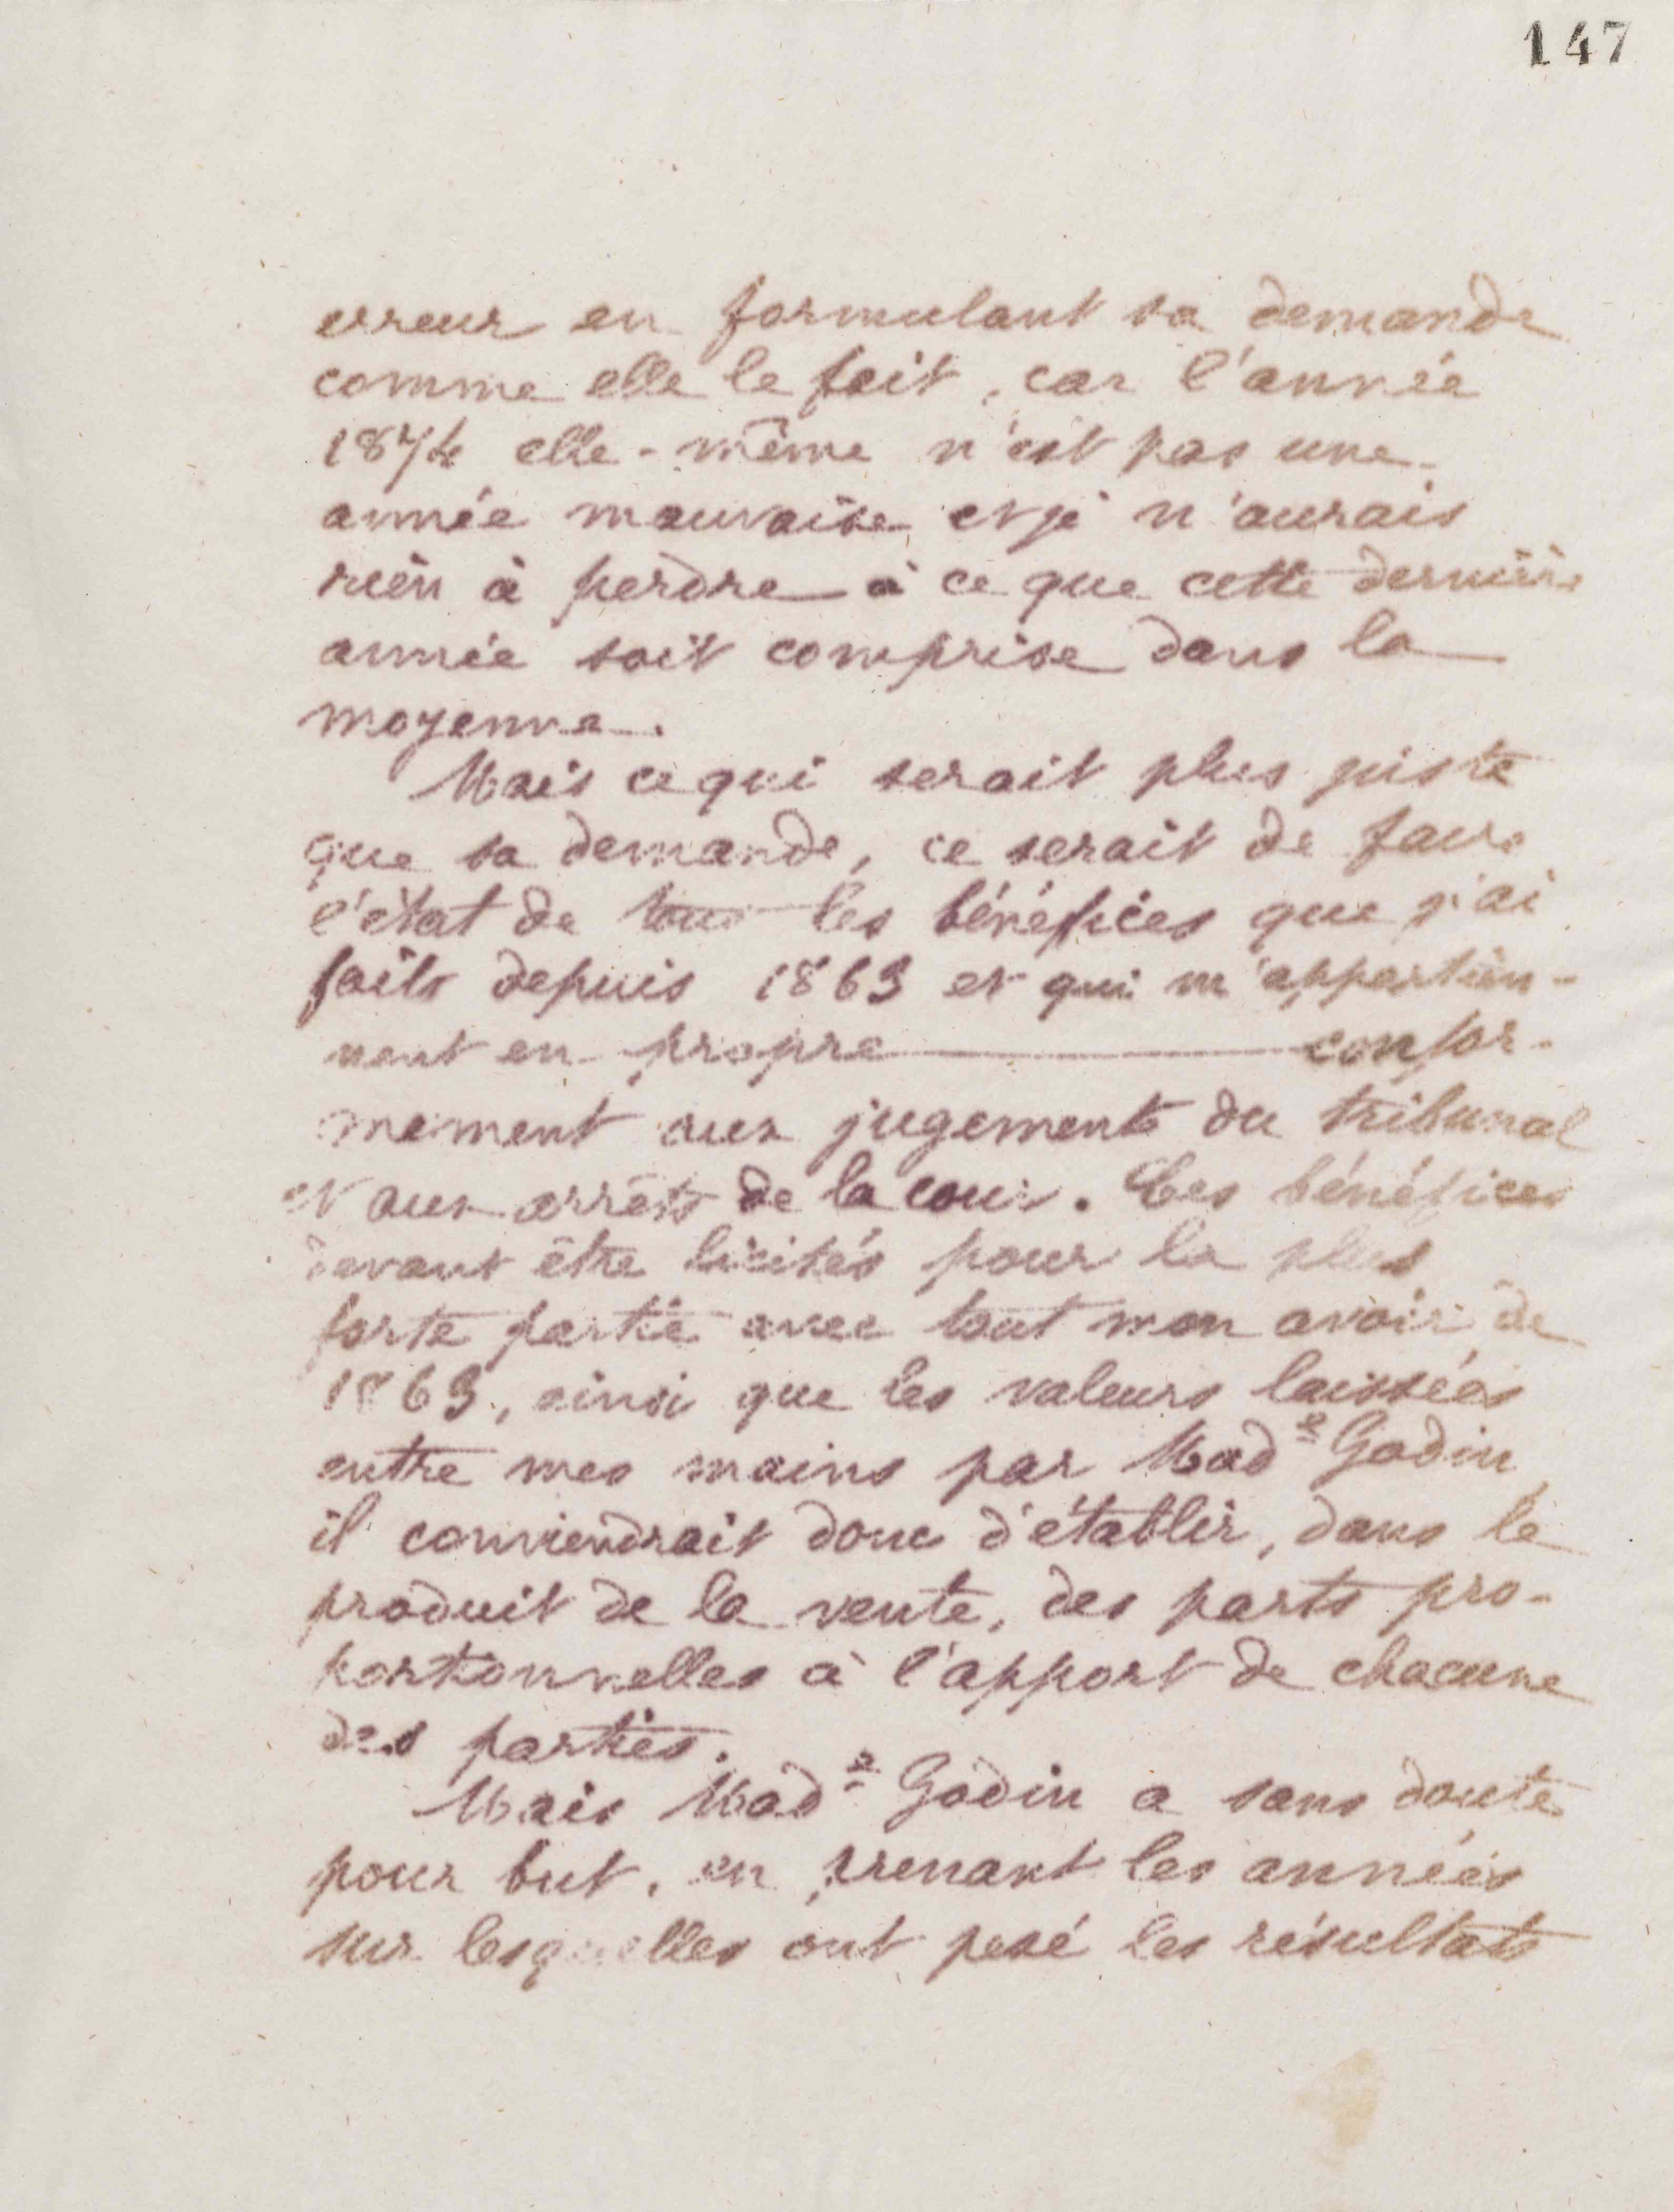 147
erreur en formulant sa demande
comme elle le fait, car l'année
1874 elle-même n'est pas une
année mauvaise et je n'aurais
rien à perdre à ce que cette dernière
année soit comprise dans la
moyenne.
Mais ce qui serait plus juste
que sa demande, ce serait de faire
l'état de tous les bénéfices que j'ai
faits depuis 1863 et qui m'appartien-
nent en propre confor-
mement aux jugements du tribunal
et aux arrêts de la cour. Ces bénéfices
devant être licités pour la plus
forte partie avec tout mon avoir de
1863, ainsi que les valeurs laissées
entre mes mains par Made Godin,
il conviendrait donc d'établir, dans le
produit de la vente, des parts pro-
portionnelles à l'apport de chacune
des parties.
Mais Made Godin a sans doute
pour but, en prenant les années
sur lesquelles ont pesé les résultats